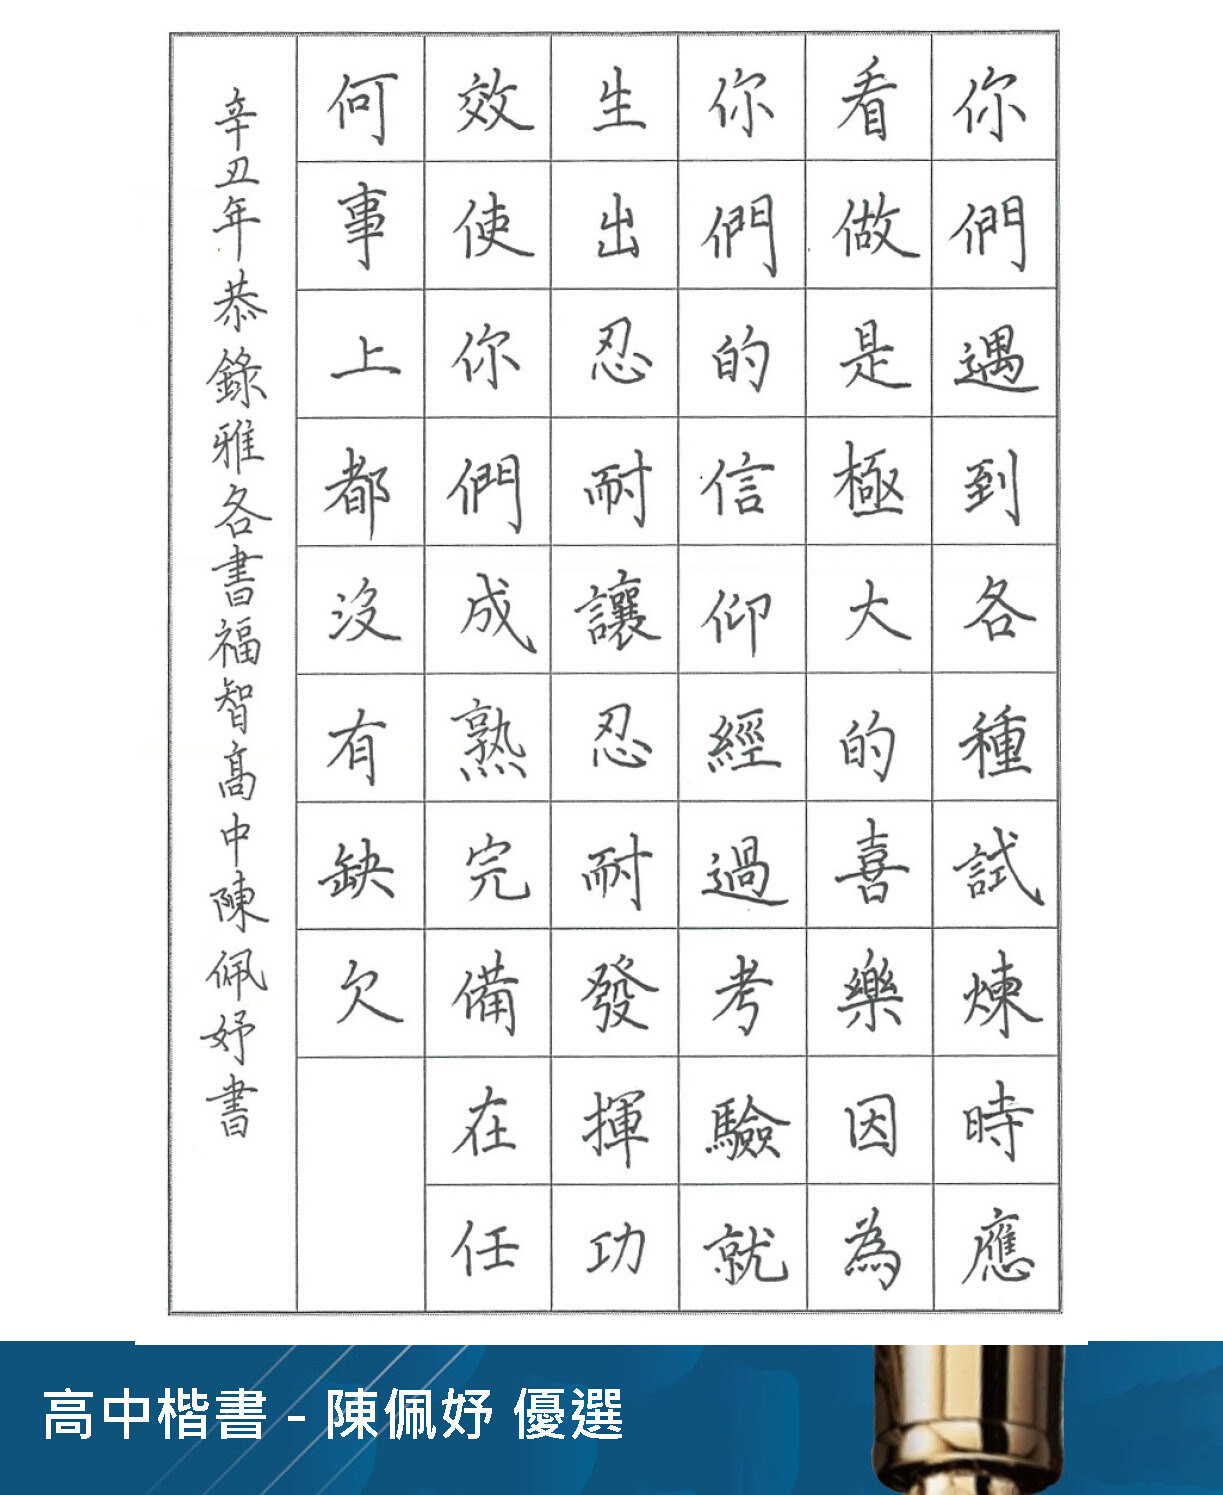 你們遇到各種試煉時應
看做是極大的喜樂因為
你們的信仰經過考驗就
生出忍耐讓忍耐發揮功
效使你們成熟完備在任
何事上都沒有缺欠
辛丑年恭錄雅各書福智高中陳佩妤書
高中楷書 - 陳佩妤 優選